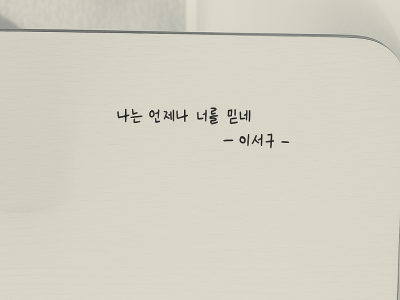 나는 언제나 너를 믿네
– 이서구 –